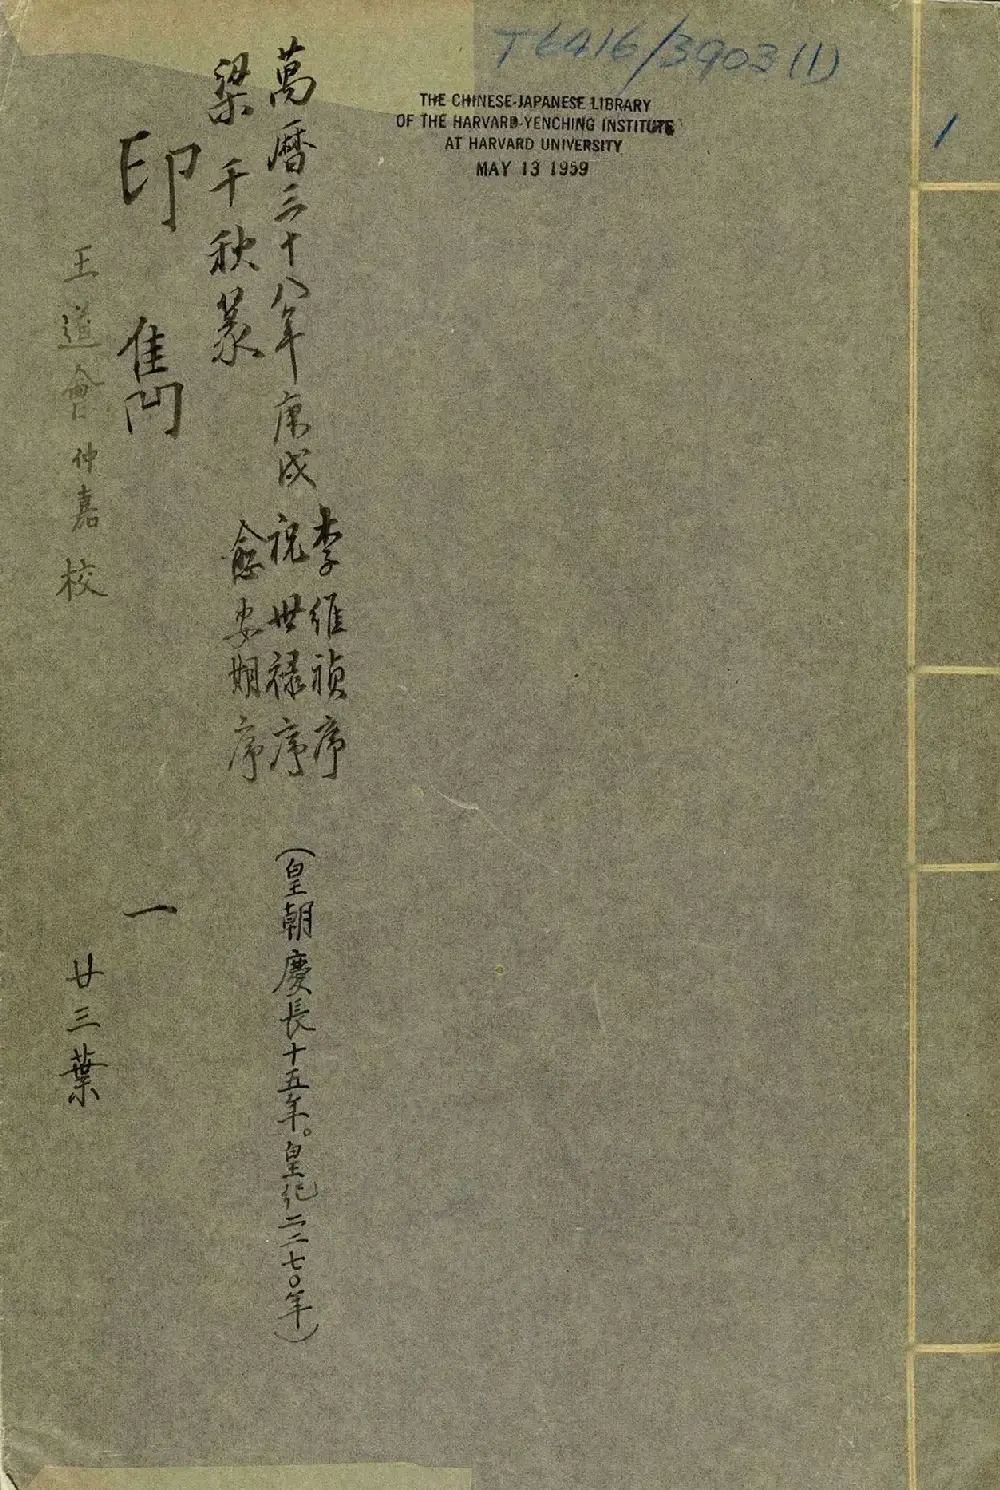 T6416/3903(1)
THE CHINESE-JAPANESE LIBRARY
OF THE HARVARD-YENCHING INSTITUTE
AT HARVARD UNIVERSITY
MAY 13 1959
1
萬暦三十八年庚戌
李維禎序
祝世禄序
愈安期序
(皇朝慶長十五年。皇紀二二七〇年)
梁千秋篆
印雋 一
王道會仲嘉校
廿三葉